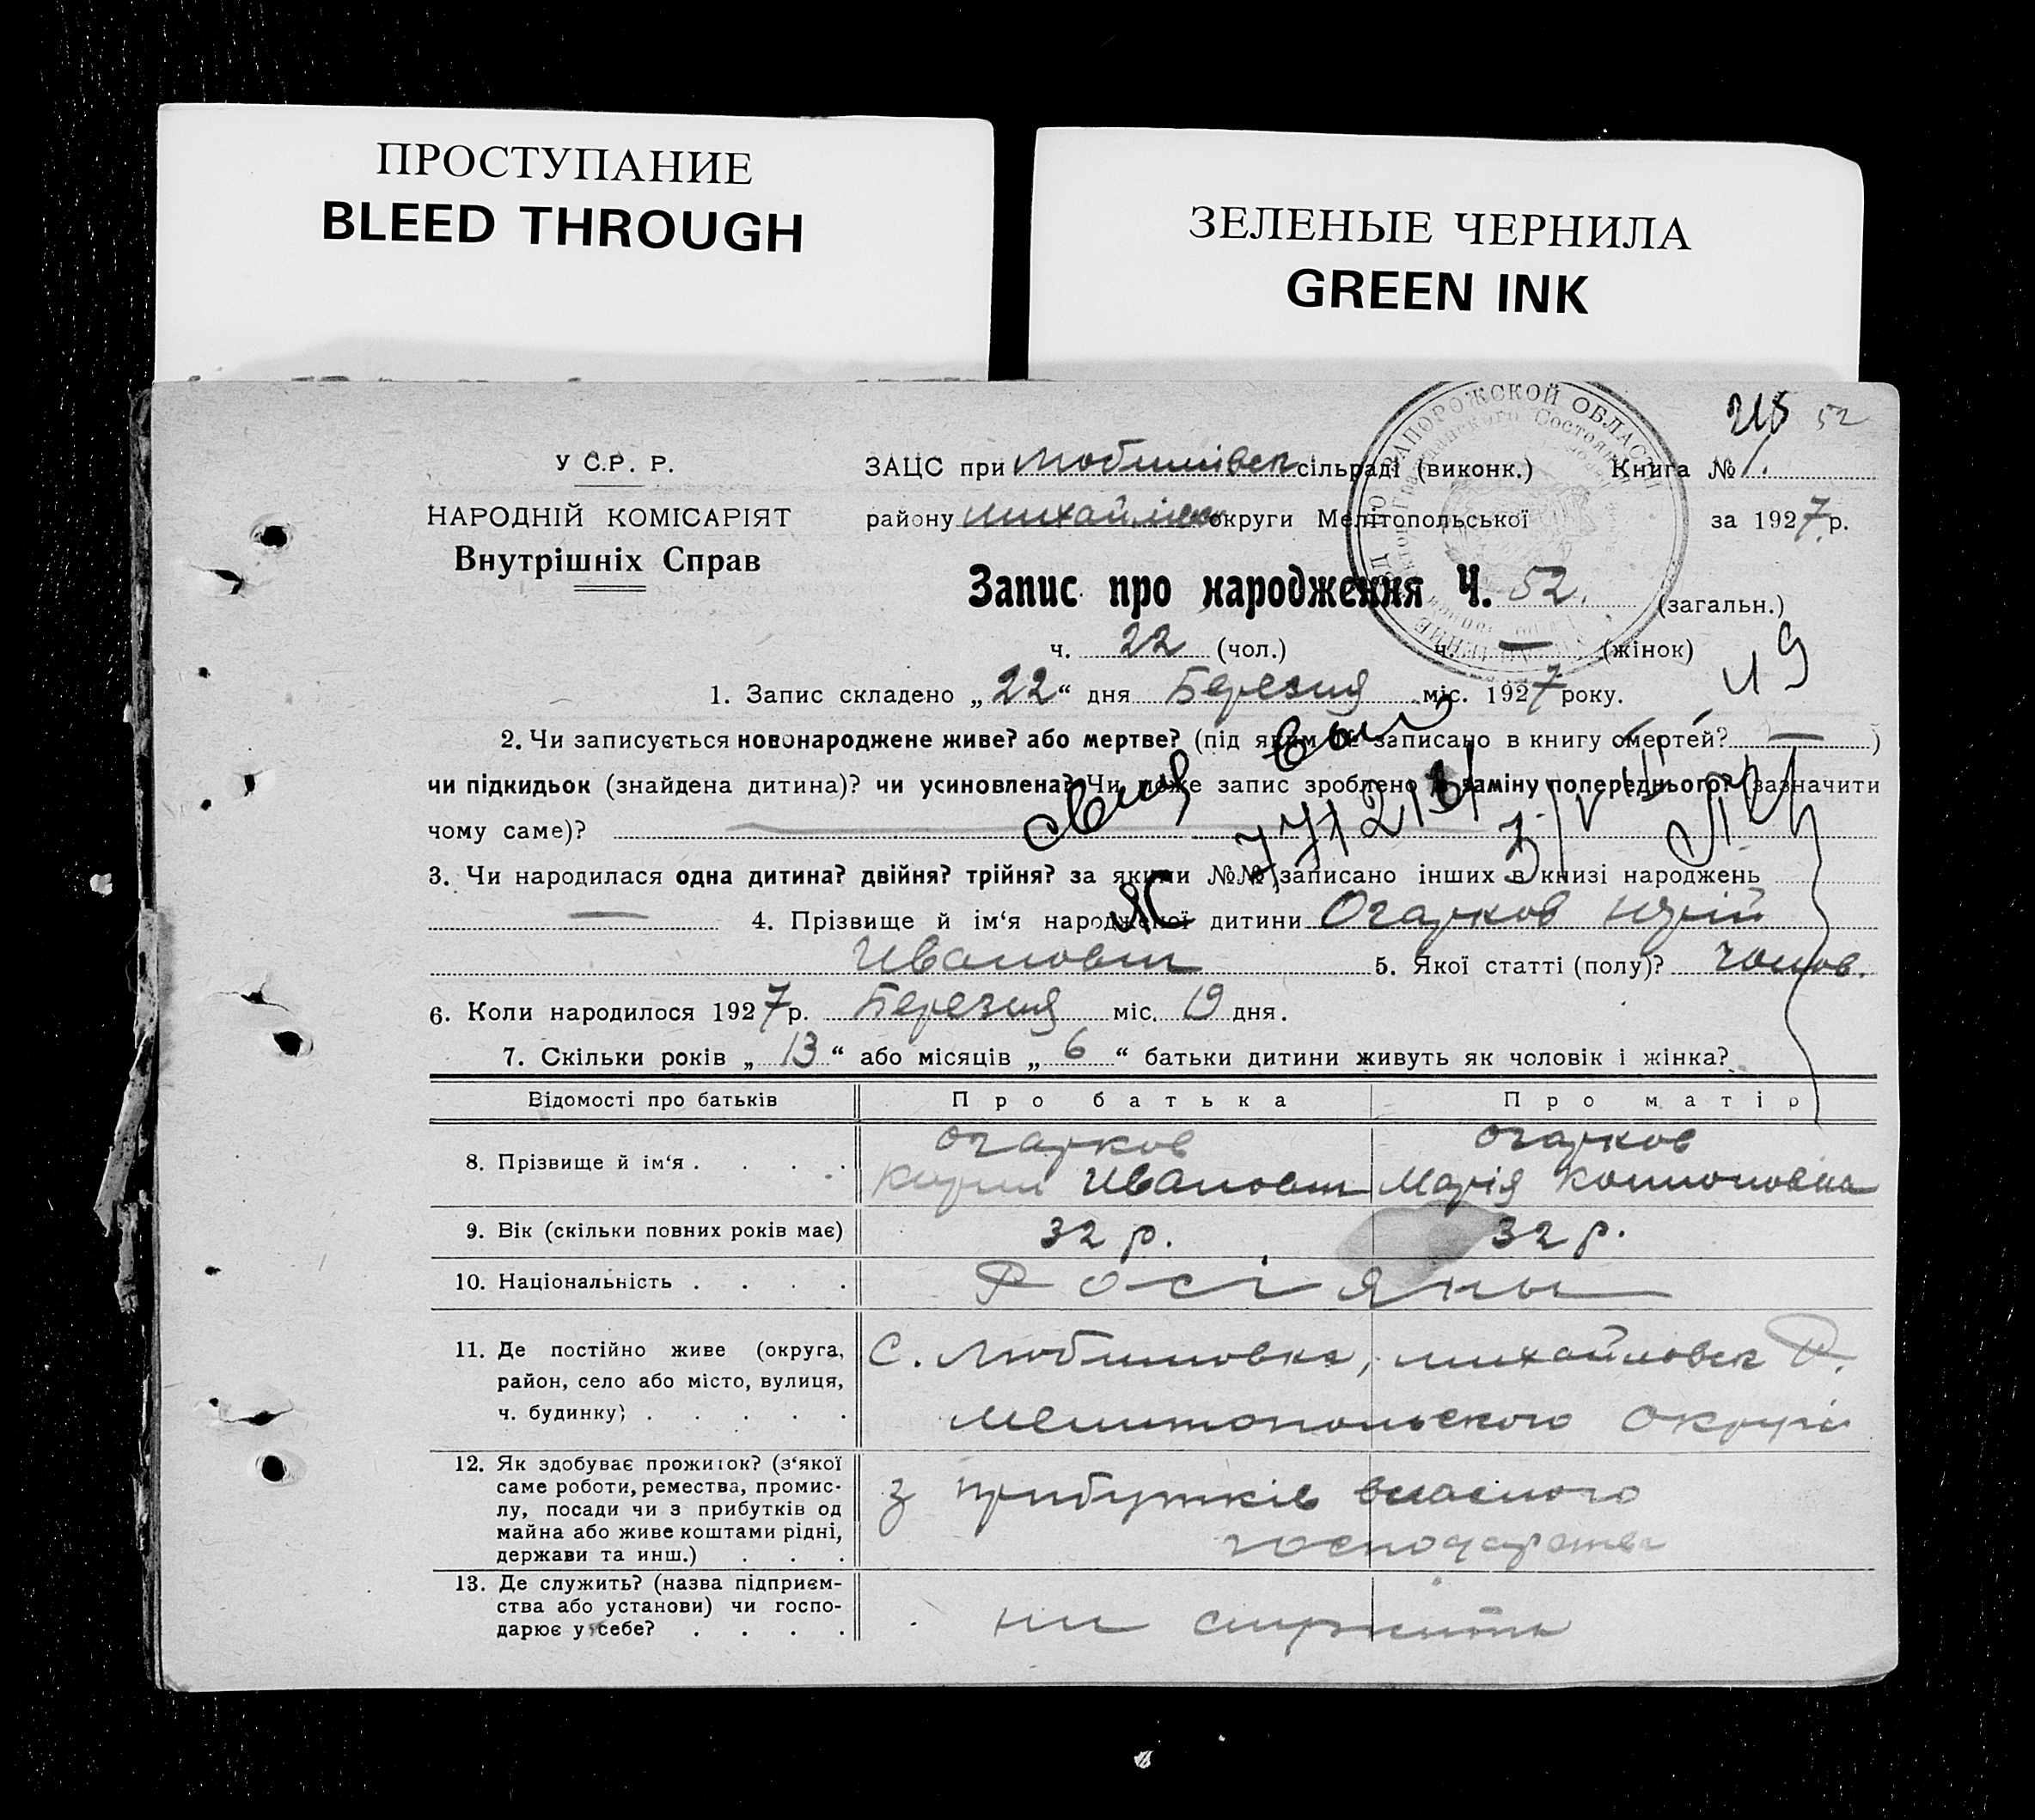 ПРОСТУПАНИЕ
BLEED THROUGH
ЗЕЛЕНЫЕ ЧЕРНИЛА
GREEN INK
52
У С.Р. Р.
НАРОДНІЙ КОМІСАРІЯТ
Внутрішніх Справ
ЗАПОРОЖСКОЙ ОБЛАСТИ
ЗАЦС при Любимівск сільраді (виконк.) Книга № 1.
району Михайлівск округи Мелітопольської за 1927 р.
Запис про народження Ч. 52. (загальн.)
ч. 22 (чол.) ч. — (жінок)
1. Запис складено „22“ дня Березня міс. 1927 року.
2. Чи записується новонароджене живе? або мертве? (під яким № записано в книгу смертей? — )
чи підкидьок (знайдена дитина)? чи усиновлена? Чи може запис зроблено в заміну попереднього? (зазначити
чому саме)?
3. Чи народилася одна дитина? двійня? трійня? за якими №№ записано інших в книзі народжень
— 4. Прізвище й ім‘я народженої дитини Огарков Юрій
Иванович 5. Якої статті (полу)? чолов.
6. Коли народилося 1927 р. Березня міс. 19 дня.
7. Скільки років „ 13 “ або місяців „ 6 “ батьки дитини живуть як чоловік і жінка?
Відомості про батьків Про батька Про матір
8. Прізвище й ім‘я . . . . Огарков Огарков
Иванович Марія
9. Вік (скільки повних років має) 32 р. 32 р.
10. Національність . . . . Росіяны
11. Де постійно живе (округа, район, село або місто, вулиця, ч. будинку) . . . . .
С. Любимовка, Михайловск Р.
Мелитопольского округи
12. Як здобуває прожиток? (з‘якої саме роботи, ремества, промислу, посади чи з прибутків од майна або живе коштами рідні, держави та инш.) . . .
з прибутків власного
господарства
13. Де служить? (назва підприємства або установи) чи господарює у себе? . . . .
ни служить